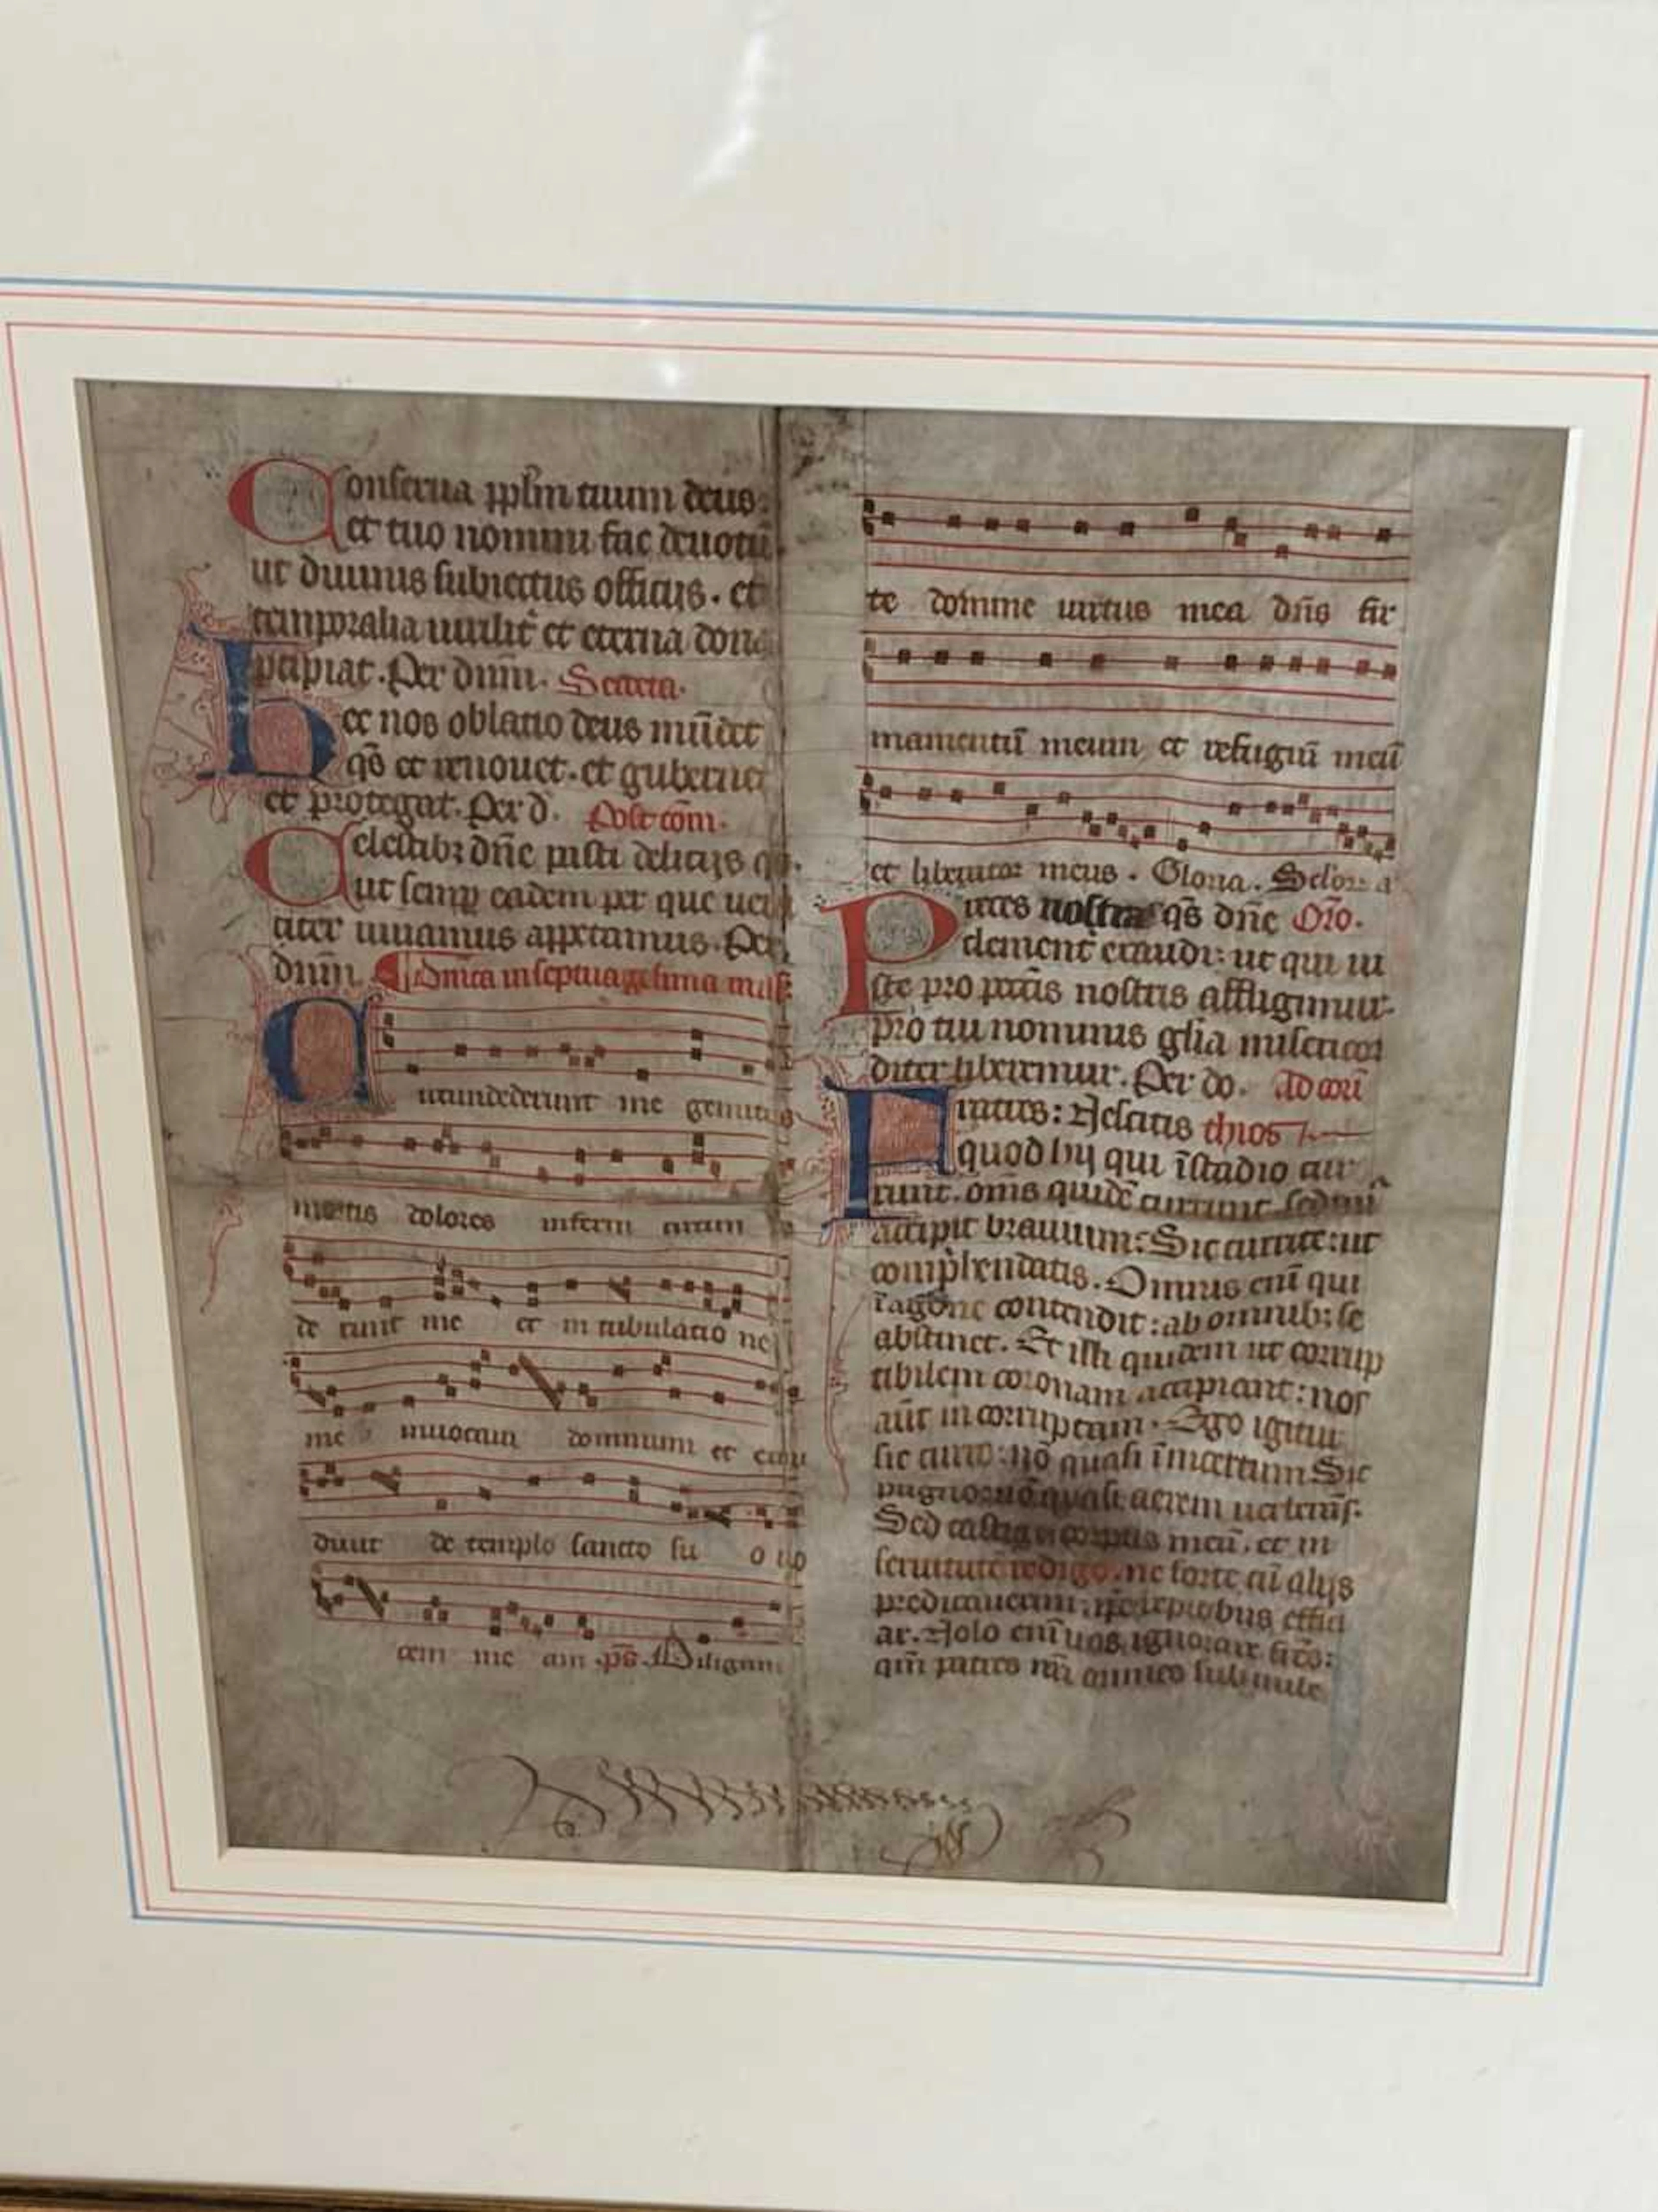 Conserua pplm tuum deus:
et tuo nomini fac deuotū
ut diuinis subiectus officijs. et
temporalia uirilit' et eterna dona
pcipiat. Per dnm. Secreta.
Hec nos oblatio deus mūdet
qs et renouet. et gubernet
et protegat. Per d. Post com.
Celestibꝫ dne pasti delicijs qs.
ut semp eadem per que uera
citer uiuamus appetamus. Per
dnm. Dnica in septuagesima
Circumdederunt me gemitus
mortis dolores inferni circum
de runt me et in tribulatio ne
me inuocaui dominum et exau
diuit de templo sancto su o uo
cem me am. ps. Diligam
te domine uirtus mea dns fir
mamentū meum et refugiū meū
et liberator meus. Gloria. Sclor a
Preces nostras qs dne Oro.
clement' exaudi: ut qui iu
ste pro pccis nostris affligimur.
pro tui nominis glia misericor
diter liberemur. Per do. Ad cori
Fratres: Nescitis thios
quod hij qui ī stadio cur
runt. oms quidē currunt. sed un'
accipit brauium: Sic currite: ut
comphendatis. Omnis eni qui
ī agone contendit: ab omnibꝫ se
abstinet. Et illi quidem ut corrup
tibilem coronam accipiant: nos
aut incorruptam. Ego igitur
sic curro: nō quasi ī incertum Sic
pugno: nō quasi aerem uerberās.
Sed castigo corpus meū. et in
seruitutē redigo. ne forte cū alijs
predicauerim: ipe reprobus effici
ar. Nolo enī uos ignorare fres:
qm patres nri omnes sub nube